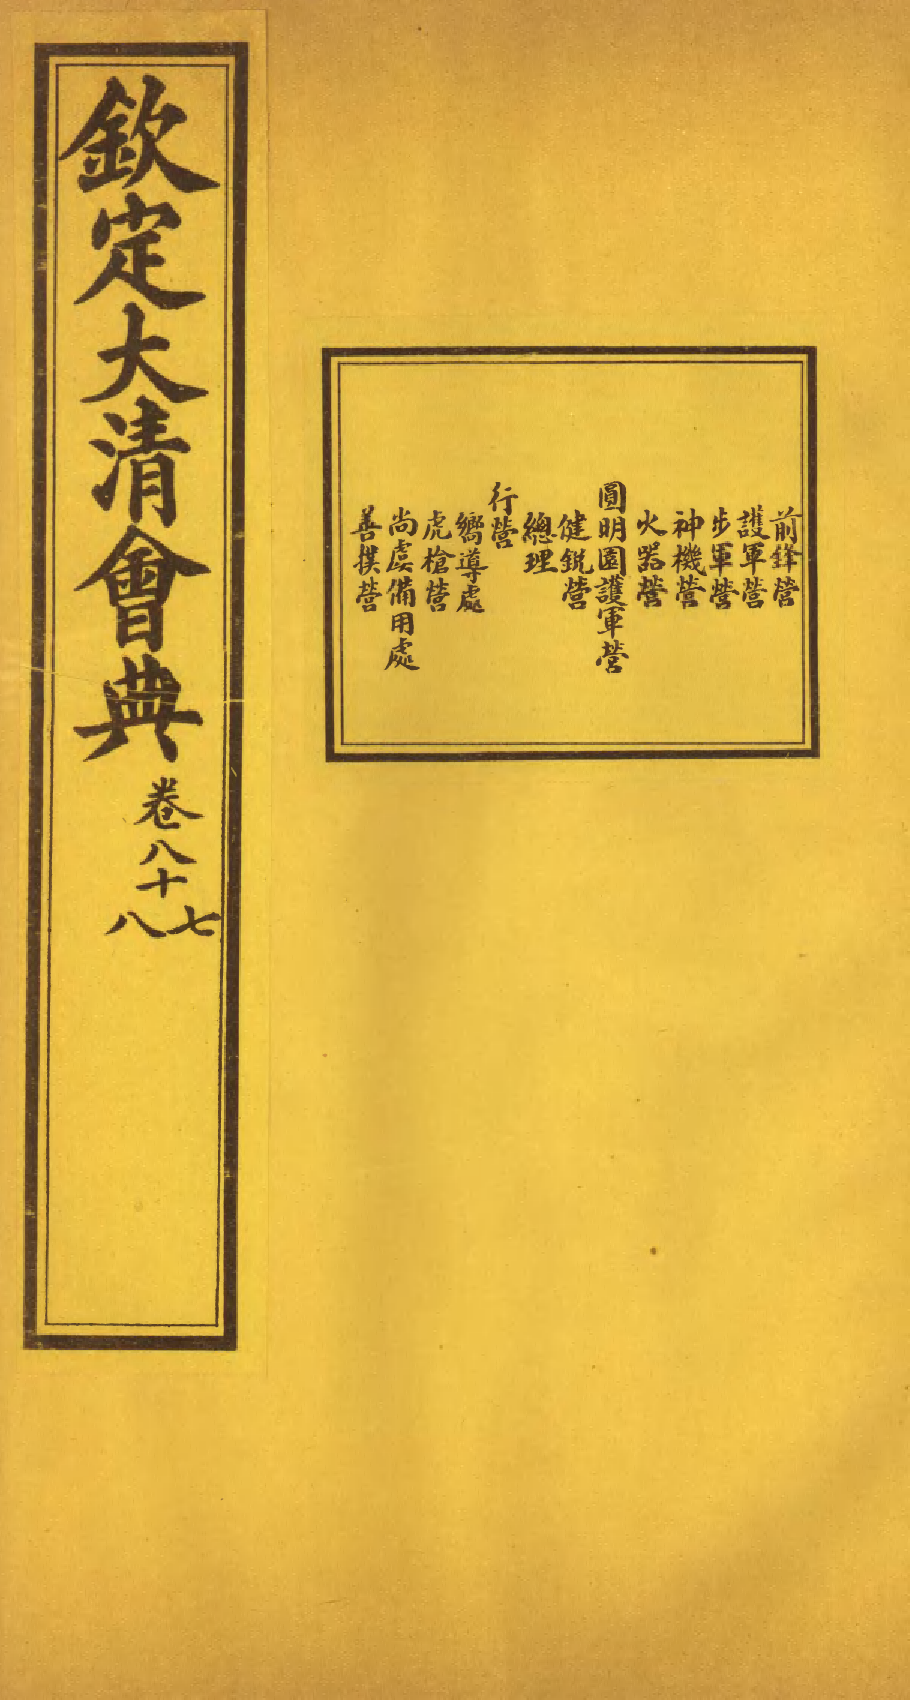 欽定大清會典卷八十七八
前鋒營
護軍營
步軍營
神機營
火器營
圓明園護軍營
健銳營
總理
行營
嚮導處
虎槍營
尚虞備用處
善撲營